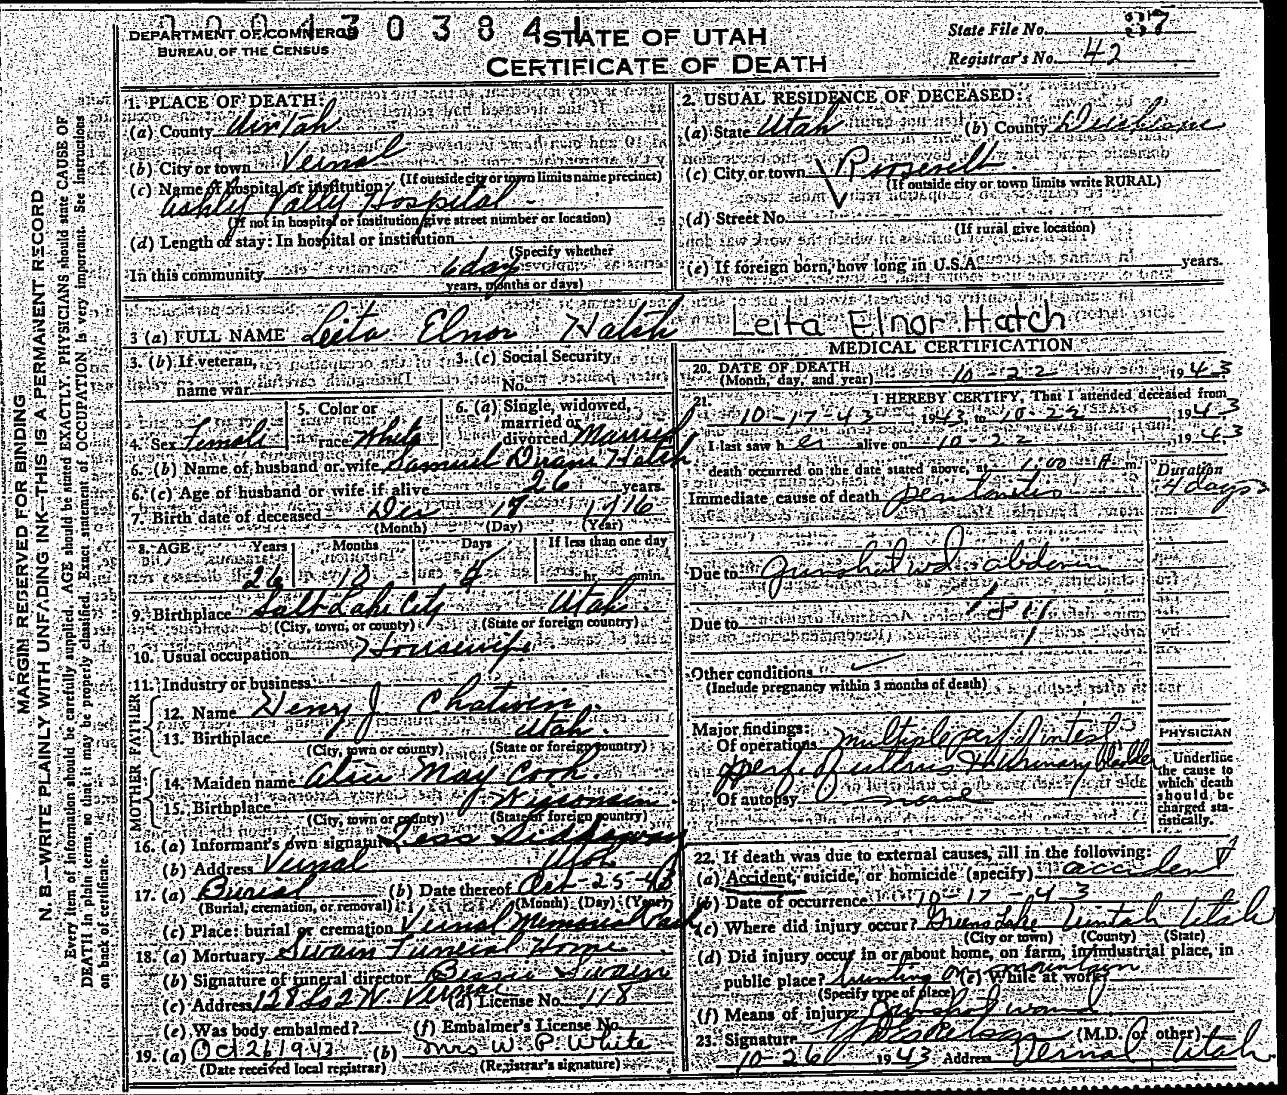 DEPARTMENT OF COMMERCE
BUREAU OF THE CENSUS
STATE OF UTAH
CERTIFICATE OF DEATH
State File No.
Registrar's No. 42
MARGIN RESERVED FOR BINDING
N. B.—WRITE PLAINLY WITH UNFADING INK—THIS IS A PERMANENT RECORD
Every item of information should be carefully supplied. AGE should be stated EXACTLY. PHYSICIANS should state CAUSE OF
DEATH in plain terms, so that it may be properly classified. Exact statement of OCCUPATION is very important. See instructions
on back of certificate.
1. PLACE OF DEATH:
(a) County Uintah
(b) City or town Vernal
(If outside city or town limits name precinct)
(c) Name of hospital or institution:
Ashly Vally Hospital
(If not in hospital or institution give street number or location)
(d) Length of stay: In hospital or institution
(Specify whether
In this community 6 day
years, months or days)
2. USUAL RESIDENCE OF DECEASED:
(a) State Utah (b) County
(c) City or town
(If outside city or town limits write RURAL)
(d) Street No.
(If rural give location)
(e) If foreign born, how long in U.S.A. years.
3 (a) FULL NAME Leita Elnor Hatch Leita Elnor Hatch
3. (b) If veteran, name war
3. (c) Social Security No.
4. Sex Female
5. Color or race White
6. (a) Single, widowed, married or divorced Married
6. (b) Name of husband or wife Samuel Duane Hatch
6. (c) Age of husband or wife if alive 26 years.
7. Birth date of deceased
(Month) (Day) (Year)
8. AGE Years Months Days If less than one day
26 10 hr. min.
9. Birthplace Salt Lake City Utah
(City, town, or county) (State or foreign country)
10. Usual occupation Housewife
11. Industry or business
FATHER
12. Name Henry J. Chatwin
13. Birthplace Utah
(City, town or county) (State or foreign country)
MOTHER
14. Maiden name Alice May Cook
15. Birthplace Wisconsin
(City, town or county) (State or foreign country)
16. (a) Informant's own signature
(b) Address Vernal Utah
17. (a) Burial (b) Date thereof Oct-25-43
(Burial, cremation, or removal) (Month) (Day) (Year)
(c) Place: burial or cremation Vernal Memorial Park
18. (a) Mortuary Swain Funeral Home
(b) Signature of funeral director Bessie Swain
(c) Address Vernal (d) License No. 118
(e) Was body embalmed? (f) Embalmer's License No.
19. (a) Oct 26 1943 (b) Mrs W. P. White
(Date received local registrar) (Registrar's signature)
MEDICAL CERTIFICATION
20. DATE OF DEATH
(Month, day, and year) 10-22 1943
21. I HEREBY CERTIFY, That I attended deceased from
10-17-43 1943 to 10-22 1943
I last saw her alive on 10-22, 1943
death occurred on the date stated above, at 1:00 A m.
Duration
Immediate cause of death peritonitis 4 days
Due to gunshot wd. abdomen
Due to
Other conditions
(Include pregnancy within 3 months of death)
Major findings:
Of operations multiple perf. intest
perf. of uterus & urinary bladder
Of autopsy none
PHYSICIAN
Underline the cause to which death should be charged statistically.
22. If death was due to external causes, fill in the following:
(a) Accident, suicide, or homicide (specify) accident
(b) Date of occurrence 10-17-43
(c) Where did injury occur? Greens Lake Uintah Utah
(City or town) (County) (State)
(d) Did injury occur in or about home, on farm, in industrial place, in
public place? hunting on mountain (e) While at work?
(Specify type of place)
(f) Means of injury Gunshot wound
23. Signature (M.D. or other)
10-26 1943 Address Vernal, Utah